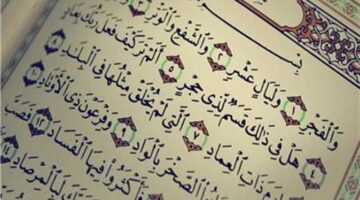 بِسْمِ
وَٱلْفَجْرِ ١ وَلَيَالٍ عَشْرٍ ٢ وَٱلشَّفْعِ وَٱلْوَتْرِ
٤ هَلْ فِى ذَٰلِكَ قَسَمٌ لِّذِى حِجْرٍ ٥ أَلَمْ تَرَ كَيْفَ فَعَلَ رَبُّكَ بِعَادٍ
ذَاتِ ٱلْعِمَادِ ٧ ٱلَّتِى لَمْ يُخْلَقْ مِثْلُهَا فِى ٱلْبِلَٰدِ
ٱلصَّخْرَ بِٱلْوَادِ ٩ وَفِرْعَوْنَ ذِى ٱلْأَوْتَادِ ١٠
فَأَكْثَرُوا۟ فِيهَا ٱلْفَسَادَ ١٢ فَصَبَّ
لَبِٱلْمِرْصَادِ ١٤